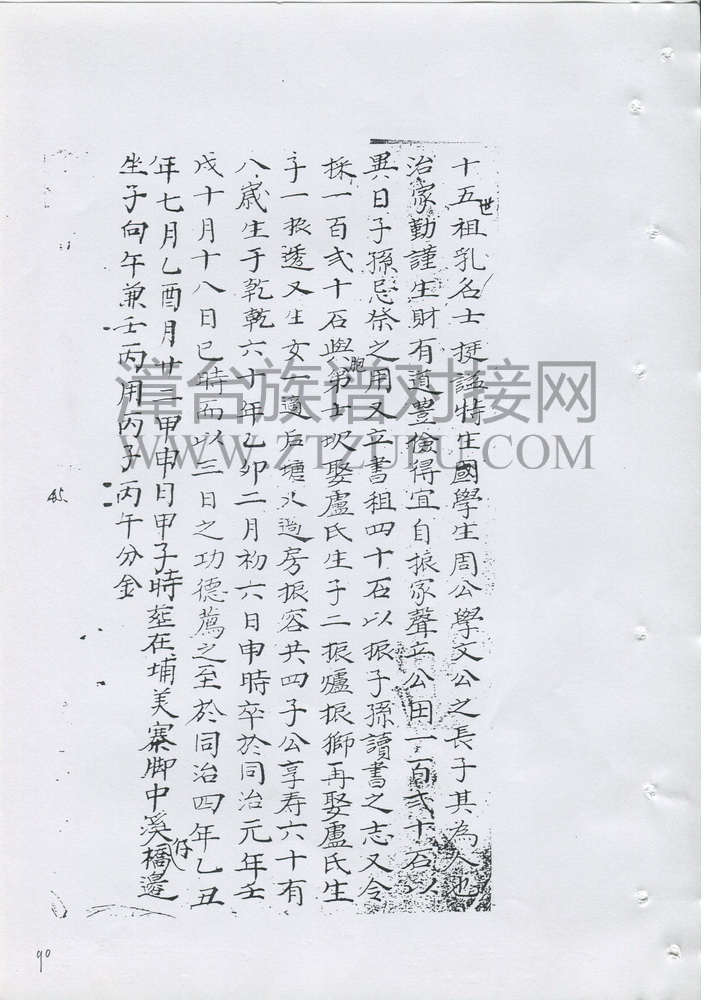 十五世祖乳名士挺諡特生國學生周公學文公之長子其為人也
治家勤謹生財有道豊儉得宜自振家聲立公田一百弍十石以
異日子孫忌祭之用又立書租四十石以振子孫讀書之志又令
採一百弍十石與胞弟士坎娶盧氏生子二振爐振獅再娶盧氏生
子一振透又生女一適后塘又過房振容共四子公享寿六十有
八歲生于乾乾六十年乙卯二月初六日申時卒於同治元年壬
戌十月十八日巳時而以三日之功德薦之至於同治四年乙丑
年七月乙酉月廿三甲申日甲子時塟在埔美寨脚中溪仔橋邉
坐子向午兼壬丙用丙子丙午分金
45
90
漳台族谱对接网
WWW.ZTZUPU.COM